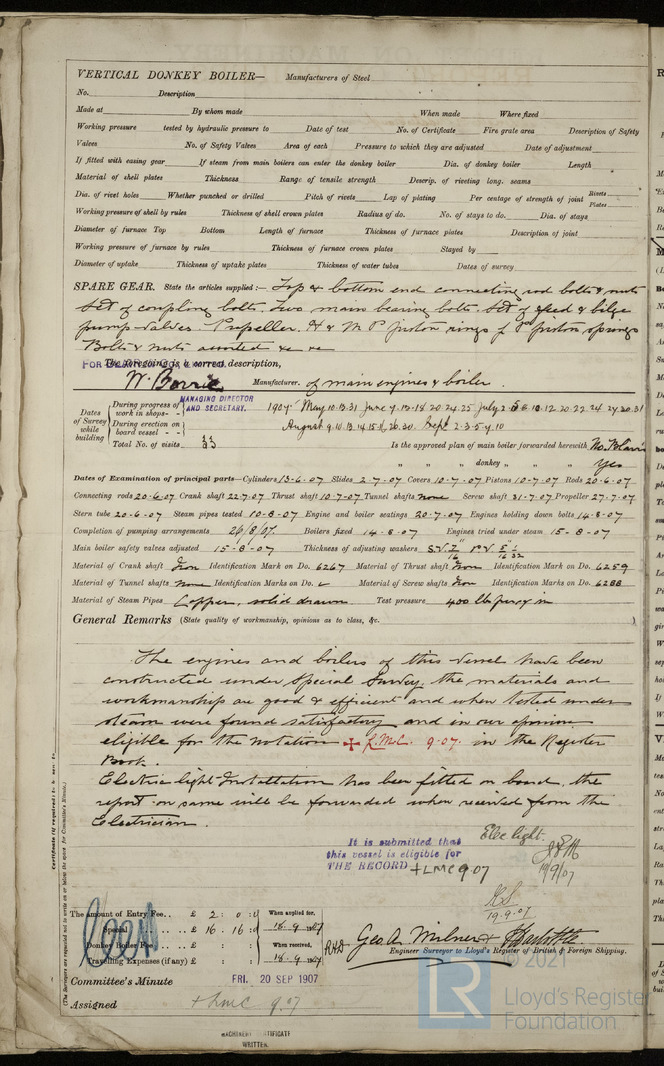 VERTICAL DONKEY BOILER— Manufacturers of Steel
No. Description
Made at By whom made When made Where fixed
Working pressure tested by hydraulic pressure to Date of test No. of Certificate Fire grate area Description of Safety
Valves No. of Safety Valves Area of each Pressure to which they are adjusted Date of adjustment
If fitted with easing gear If steam from main boilers can enter the donkey boiler Dia. of donkey boiler Length
Material of shell plates Thickness Range of tensile strength Descrip. of riveting long. seams
Dia. of rivet holes Whether punched or drilled Pitch of rivets Lap of plating Per centage of strength of joint Rivets Plates
Working pressure of shell by rules Thickness of shell crown plates Radius of do. No. of stays to do. Dia. of stays
Diameter of furnace Top Bottom Length of furnace Thickness of furnace plates Description of joint
Working pressure of furnace by rules Thickness of furnace crown plates Stayed by
Diameter of uptake Thickness of uptake plates Thickness of water tubes Dates of survey
SPARE GEAR. State the articles supplied:— Top & bottom end connecting rod bolts & nuts
Set of coupling bolts. Two main bearing bolts. Set of feed & bilge
pump valves. Propeller. H & M P piston rings piston springs
Bolts & nuts assorted &c &c
The foregoing is a correct description,
W. Borrie Manufacturer. of main engines & boiler.
MANAGING DIRECTOR
AND SECRETARY.
Dates of Survey while building
During progress of work in shops - - 1907 May 10.13.31 June 7.13.18.20.24.25 July 2.5.8.10.12.20.22.24.27.30.31
During erection on board vessel - - August 9.10.13.14.15.16.20.30. Sept 2.3.5.7.10
Total No. of visits 33
Is the approved plan of main boiler forwarded herewith
" " " donkey " " " Yes
Dates of Examination of principal parts—Cylinders 13-6-07 Slides 2-7-07 Covers 10-7-07 Pistons 10-7-07 Rods 20-6-07
Connecting rods 20-6-07 Crank shaft 22-7-07 Thrust shaft 10-7-07 Tunnel shafts none Screw shaft 31-7-07 Propeller 27-7-07
Stern tube 20-6-07 Steam pipes tested 10-8-07 Engine and boiler seatings 20-7-07 Engines holding down bolts 14-8-07
Completion of pumping arrangements 26/8/07. Boilers fixed 14-8-07 Engines tried under steam 15-8-07
Main boiler safety valves adjusted 15-8-07 Thickness of adjusting washers
Material of Crank shaft Iron Identification Mark on Do. 6267 Material of Thrust shaft Iron Identification Mark on Do. 6259
Material of Tunnel shafts none Identification Marks on Do. Material of Screw shafts Iron Identification Marks on Do. 6288
Material of Steam Pipes Copper, solid drawn Test pressure 400 lb per sq in
General Remarks (State quality of workmanship, opinions as to class, &c.
The engines and boilers of this vessel have been
constructed under Special Survey, the materials and
workmanship are good & efficient and when tested under
steam were found satisfactory and in our opinion
eligible for the notation ✠ L.M.C. 9-07. in the Register
Book.
Electric light Installation has been fitted on board, the
report on same will be forwarded when received from the
Electrician.
Elec light.
It is submitted that
this vessel is eligible for
THE RECORD + LMC 9 07
19/9/07
19.9.07
The amount of Entry Fee.. £ 2 : 0 : 0 When applied for,
Special £ 16 : 16 : 0 16.9.07
Donkey Boiler Fee £ : : When received,
Travelling Expenses (if any) £ : : 16.9.07
Geo. A. Milner
Engineer Surveyor to Lloyd's Register of British & Foreign Shipping.
Committee's Minute FRI. 20 SEP 1907
Assigned + LMC 9.07
MACHINERY CERTIFICATE
WRITTEN.
© 2021
LR
Lloyd's Register
Foundation